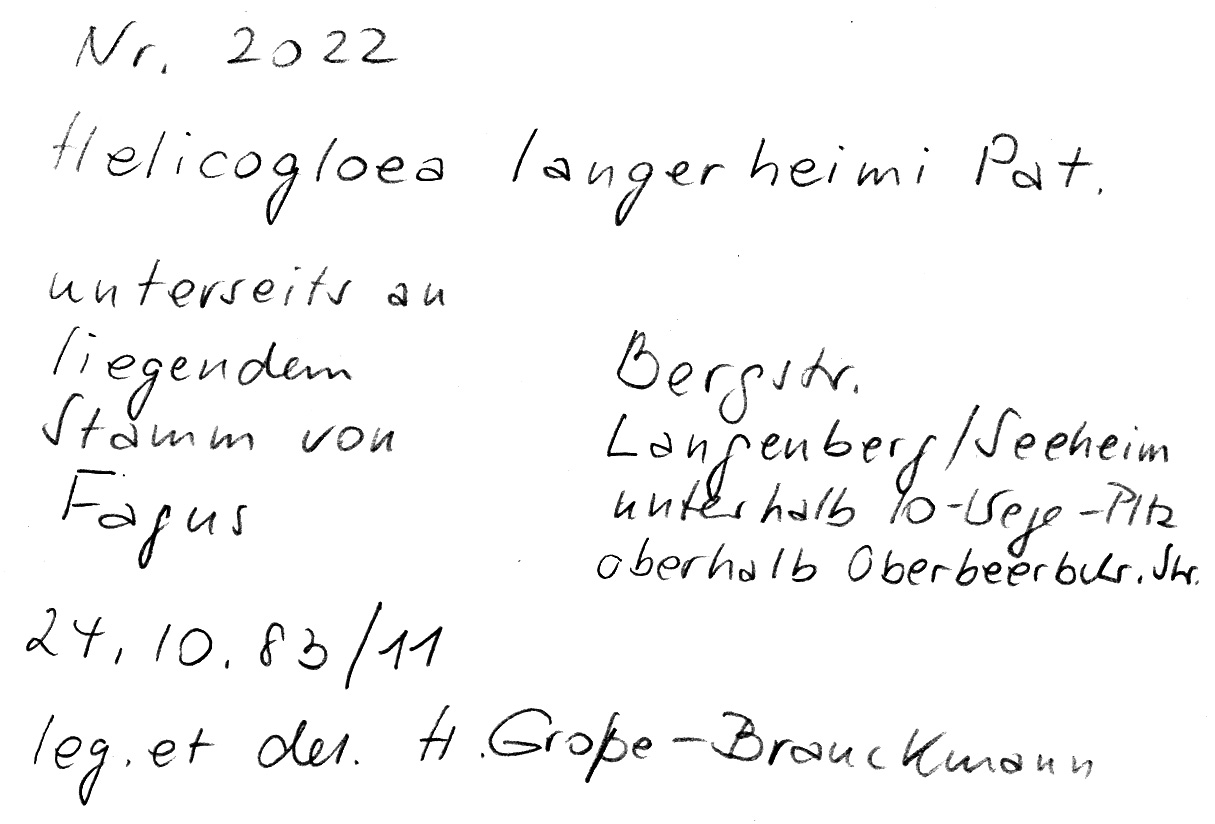 Nr. 2022
Helicogloea langerheimi Pat.
unterseits an
liegendem
Stamm von
Fagus
Bergstr.
Langenberg/Seeheim
unterhalb 10-Wege-Pltz
oberhalb Oberbeerbchr. Str.
24. 10. 83/11
leg. et det. H. Große-Brauckmann